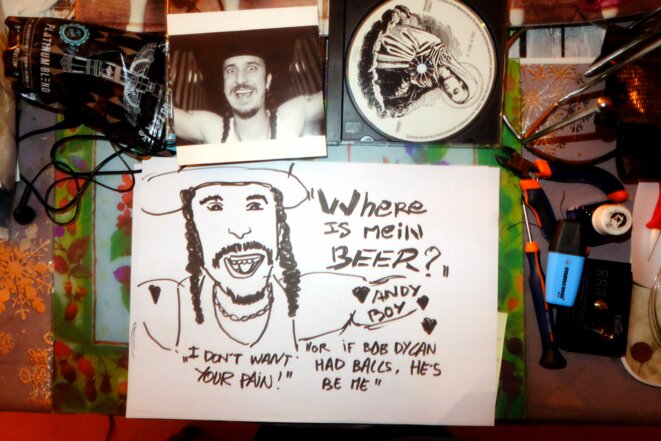 PLATINUM BLEND
"Where
IS MEIN
BEER?"
ANDY
BOY
"I DON'T WANT
YOUR PAIN!"
"OR IF BOB DYLAN
HAD BALLS, HE'S
BE ME"